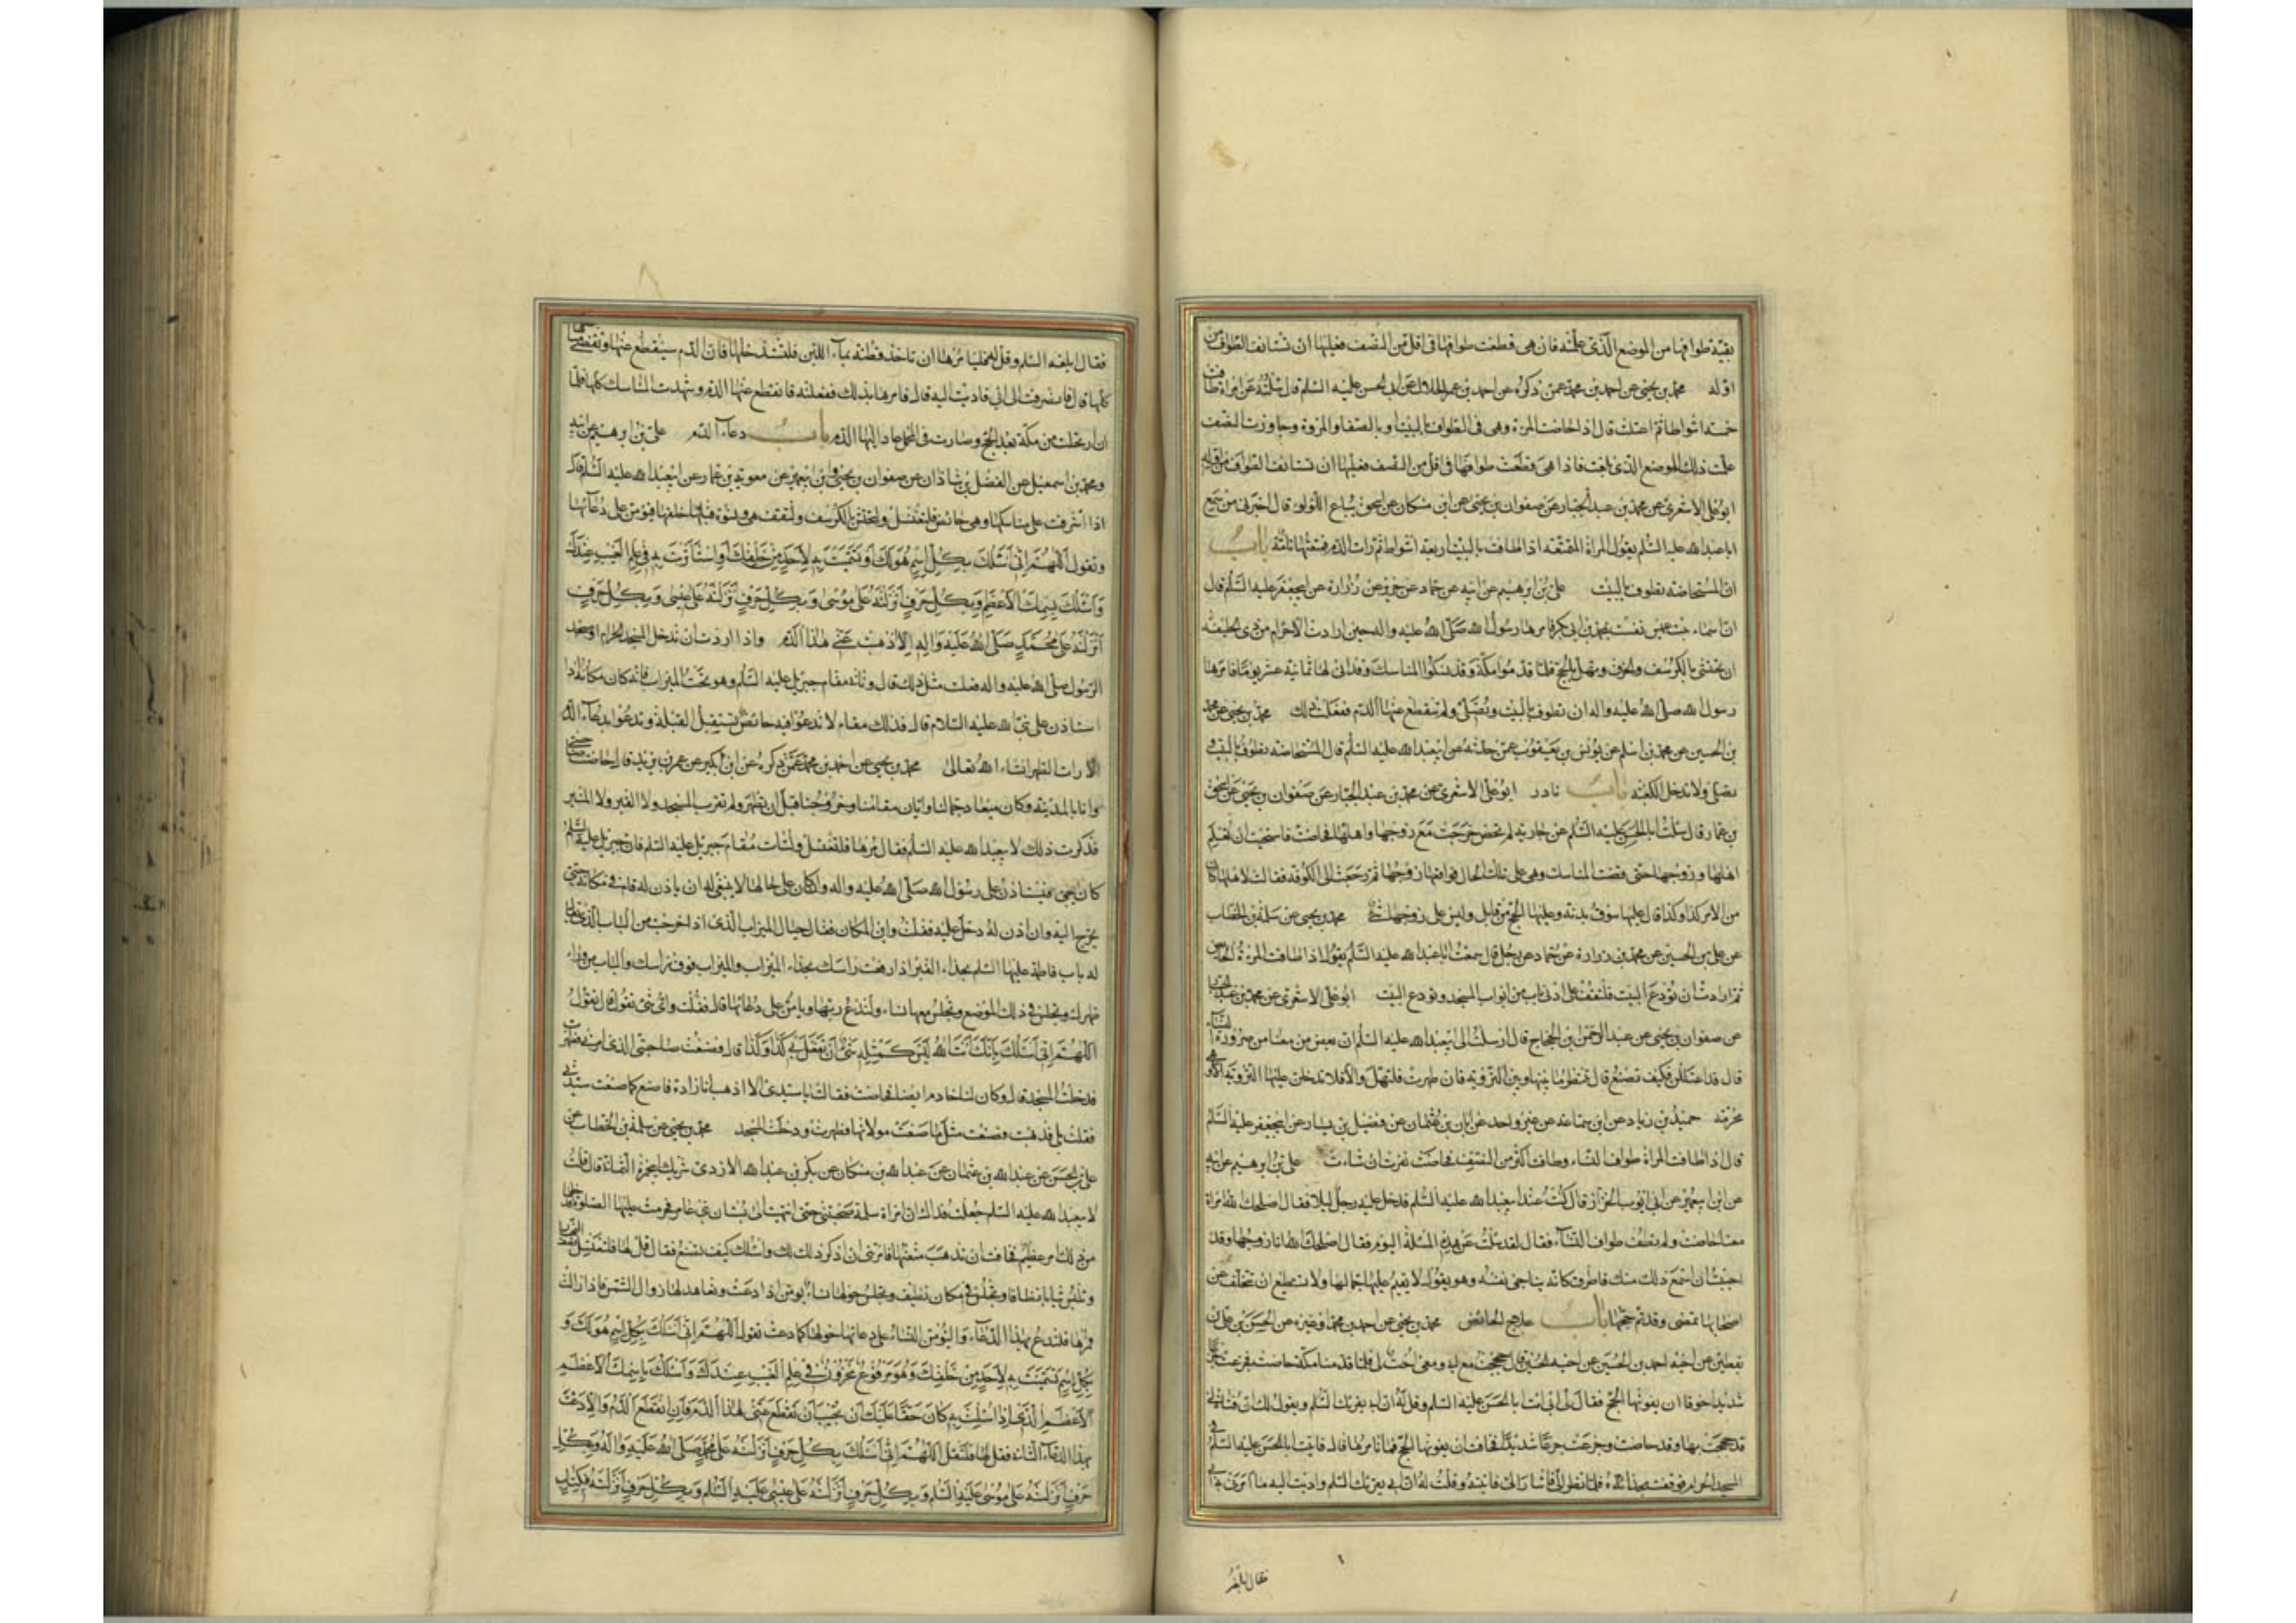 بقيّة طوافها من الموضع الّذي علمته فان هي قطعت طوافها في اقل من النصف فعليها ان تستانف الطواف من
اوله محمّد بن يحيى عن احمد بن محمّد عمّن ذكره عن احمد بن عمر الحلال عن ابي الحسن عليه السّلم قال سئلته عن امراة طافت
خمسة اشواط ثمّ اعتلت قال اذا حاضت المرة وهي في الطواف بالبيت او بالصّفا والمروة وجاوزت النّصف
علّمت ذلك الموضع الذي بلغت فاذا هي قطعت طوافها في اقل من النّصف فعليها ان تستانف الطواف من اوله
ابو علي الاشعري عن محمّد بن عبد الجبّار عن صفوان بن يحيى عن ابن مسكان عن اسحق بيّاع اللؤلؤ قال اخبرني من سمع
ابا عبد الله عليه السّلم يقول المراة المتمتّعة اذا طافت بالبيت اربعة اشواط ثم رات الدّم فمتعتها تامّة باب
انّ المستحاضة تطوف بالبيت علي بن ابرهيم عن ابيه عن حماد عن حريز عن زرارة عن ابي جعفر عليه السّلم قال
ان اسماء بنت عميس نفست بمحمّد بن ابي بكر فامرها رسول الله صلّى الله عليه واله حين ارادت الاحرام من ذي الحليفة
ان تحتشي بالكرسف والخرق وتهل بالحج فلمّا قدموا مكّة وقد نسكوا المناسك وقد اتى لها ثمانية عشر يوما فامرها
رسول الله صلّى الله عليه واله ان تطوف بالبيت وتصلّي ولم ينقطع عنها الدّم ففعلت ذلك محمّد بن يحيى عن محمد
بن الحسين عن محمد بن اسلم عن يونس بن يعقوب عمّن حدّثه عن ابي عبد الله عليه السّلم قال المستحاضة تطوف بالبيت و
تصلّي ولا تدخل الكعبة باب نادر ابو علي الاشعري عن محمد بن عبد الجبّار عن صفوان بن يحيى عن اسحق
بن عمار قال سئلت ابا الحسن عليه السّلم عن جارية لم تحض خرجت مع زوجها واهلها فحاضت فاستحيت ان تعلم
اهلها وزوجها حتى قضت المناسك وهي على تلك الحال فواقعها زوجها ثم رجعت الى الكوفة فقالت لاهلها كان
من الامر كذا وكذا قال عليها سوق بدنة وعليها الحج من قابل وليس على زوجها شيء محمد بن يحيى عن سلمة بن الخطاب
عن علي بن الحسين عن محمد بن زيادة عن حماد عن رجل قال سمعت ابا عبد الله عليه السّلم يقول اذا طافت المرة الحائض
ثم ارادت ان تودع البيت فلتقف على ادنى باب من ابواب المسجد وتودع البيت ابو علي الاشعري عن محمد بن عبد الجبار
عن صفوان بن يحيى عن عبد الرحمن بن الحجاج قال ارسلت الى ابي عبد الله عليه السّلم ان بعض من معنا من صرورة النساء
قال قد اعتللن فكيف تصنع قال تنتظر ما بينها وبين التروية فان طهرت فلتهلّ والّا فلا تدخلن عليها التروية الا وهي
محرمة حميد بن زياد عن ابن سماعة عن غير واحد عن ابان بن عثمان عن فضيل بن يسار عن ابي جعفر عليه السّلم
قال اذا طافت المراة طواف النساء وطافت اكثر من النصف فحاضت نفرت ان شاءت علي بن ابرهيم عن ابيه
عن ابن ابي عمير عن ابي ايوب الخزاز قال كنت عند ابي عبد الله عليه السّلم فدخل عليه رجل ليلا فقال اصلحك الله امراة
معنا حاضت ولم تطف طواف النساء فقال لقد سئلت عن هذه المسئلة اليوم فقال اصلحك الله انا زوجها وقد
احببت ان اسمع ذلك منك فاطرق كانه يناجي نفسه وهو يقول لا يقيم عليها جمالها ولا تستطيع ان تتخلف عن
اصحابها تمضي وقد تم حجها باب علاج الحائض محمد بن يحيى عن احمد بن محمد وغيره عن الحسن بن علي بن
يقطين عن اخيه احمد بن الحسين عن اخيه الحسين قال حججت مع ابي ومعي اخت لي فلمّا قدمنا مكّة حاضت فجزعت جزعا
شديدا خوفا ان يفوتها الحج فقال لي ابي ائت ابا الحسن عليه السّلم وقل له ان ابي يقرئك السّلم ويقول لك ان فتاة لي
قد حججت بها وقد حاضت وجزعت جزعا شديدا مخافة ان يفوتها الحج فما تامرها قال فاتيت ابا الحسن عليه السّلم في
المسجد الحرام فوقفت بحذائه فلمّا نظر الي اشار الي فاتيته وقلت له ان ابي يقرئك السّلم واديت اليه ما امرني به ابي
فقال ابلغه
فقال ابلغه السّلم وقل له فليامرها ان تاخذ قطنة بماء اللبن فلتستدخلها فان الدّم سينقطع عنها وتقضي مناسكها
كلّها قال فانصرفت الى ابي فاديت اليه قال فامرها بذلك ففعلته فانقطع عنها الدّم وشهدت المناسك كلها فلمّا
ان ارتحلت من مكّة بعد الحج وصارت في المحمل عاد اليها الدّم باب دعاء الدّم علي بن ابرهيم عن ابيه
ومحمد بن اسمعيل عن الفضل بن شاذان عن صفوان بن يحيى وابن ابي عمير عن معوية بن عمار عن ابي عبد الله عليه السّلم قال
اذا اشرفت على مناسكها وهي حائض فلتغتسل ولتحتش بالكرسف ولتقف هي ونسوة خلفها فيؤمنّ على دعائها
وتقول اللّهمّ انّي اسئلك بكلّ اسم هو لك او تسمّيت به لاحد من خلقك او استاثرت به في علم الغيب عندك
واسئلك باسمك الاعظم وبكلّ حرف انزلته على موسى وبكلّ حرف انزلته على عيسى وبكلّ حرف
انزلته على محمّد صلّى الله عليه واله الّا اذهبت عنّي هذا الدّم واذا اردت ان تدخل المسجد الحرام او مسجد
الرّسول صلّى الله عليه واله فعلت مثل ذلك قال وتاتي مقام جبريل عليه السّلم وهو تحت الميزاب فانه كان مكانه اذا
استاذن على نبي الله عليه السّلام قال فذلك مقام لا تدعو الله فيه حائض تستقبل القبلة وتدعو بدعاء الدّم
الا رات الطهر ان شاء الله تعالى محمد بن يحيى عن احمد بن محمد عمّن ذكره عن ابن بكير عن عمر بن يزيد قال حاضت صاحبتي
وانا بالمدينة وكان ميعاد جمالنا وابان مقامنا وخروجنا قبل ان تطهر ولم تقرب المسجد ولا القبر ولا المنبر
فذكرت ذلك لابي عبد الله عليه السّلم فقال مرها فلتغتسل ولتات مقام جبريل عليه السّلم فان جبريل عليه السّلم
كان يجيء فيستاذن على رسول الله صلّى الله عليه واله وان كان على حال لا ينبغي له ان ياذن له قام في مكانه حتى
يخرج اليه وان اذن له دخل عليه فقلت واين المكان فقال حيال الميزاب الّذي اذا خرجت من الباب الذي يقال
له باب فاطمة عليها السّلم بحذاء القبر اذا رفعت راسك بحذاء الميزاب والميزاب فوق راسك والباب من وراء
ظهرك وتجلس في ذلك الموضع وتجلس معها نساء ولتدع ربها ويؤمّنّ على دعائها قال فقلت واي شيء تقول قال تقول
اللّهمّ انّي اسئلك بانّك انت الله ليس كمثله شيء ان تفعل بي كذا وكذا قال فصنعت صاحبتي الذي امرني فطهرت
فدخلت المسجد قال وكان لنا خادم ايضا فحاضت فقالت يا سيدي الا اذهب انا زادة فاصنع كما صنعت سيدتي
فقلت بلى فذهبت فصنعت مثل ما صنعت مولاتها فطهرت ودخلت المسجد محمد بن يحيى عن سلمة بن الخطاب عن
علي بن الحسن عن عبد الله بن عثمان عن عبد الله بن مسكان عن بكر بن عبد الله الازدي شريك ابي حمزة الثمالي قال قلت
لابي عبد الله عليه السّلم جعلت فداك ان امراة مسلمة صحبتني حتى انتهيت الى بستان بني عامر فحرمت عليها الصلوة فدخلها
من ذلك امر عظيم فخافت ان تذهب متعتها فامرتني ان اذكر ذلك لك واسئلك كيف تصنع فقال قل لها فلتغتسل نصف النهار
وتلبس ثيابا نظافا وتجلس في مكان نظيف وتجلس حولها نساء يؤمنّ اذا دعت وتعاهد لها زوال الشمس فاذا زالت
فمرها فلتدع بهذا الدعاء وليؤمنّ النساء على دعائها حولها كلما دعت تقول اللّهمّ انّي اسئلك بكلّ اسم هو لك و
بكلّ اسم تسمّيت به لاحد من خلقك وهو مرفوع مخزون في علم الغيب عندك واسئلك باسمك الاعظم
الاعظم الّذي اذا سئلت به كان حقّا عليك ان تجيب ان تقطع عنّي هذا الدّم فان انقطع الدّم والّا دعت
بهذا الدعاء الثاني فقل لها فلتقل اللّهمّ انّي اسئلك بكلّ حرف انزلته على محمّد صلّى الله عليه واله وبكلّ
حرف انزلته على موسى عليه السّلم وبكلّ حرف انزلته على عيسى عليه السّلم وبكلّ حرف انزلته في كتاب